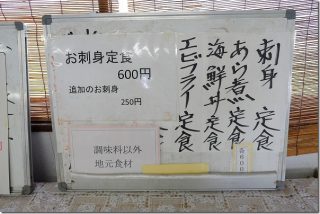 お刺身定食
600円
追加のお刺身
250円
調味料以外
地元食材
刺身 定食
あら煮 定食
海鮮丼 定食
エビフライ定食
各600